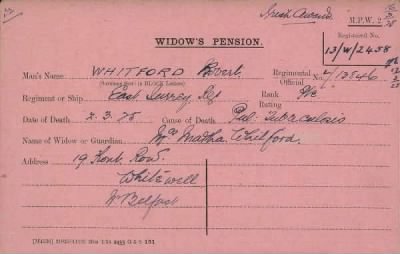 Fresh Award.
M.P.W. 2
WIDOW'S PENSION.
Registered No.
13/W/2458
Man's Name WHITFORD Robert
(Surname first in BLOCK Letters)
Regimental No.
Official
Regiment or Ship East Surrey Reg
Rank Pte
Rating
Date of Death 2.3.
Cause of Death Pul: Tuberculosis
Name of Widow or Guardian Mrs Martha Whitford.
Address 19 Row.
Whitewell
Belfast